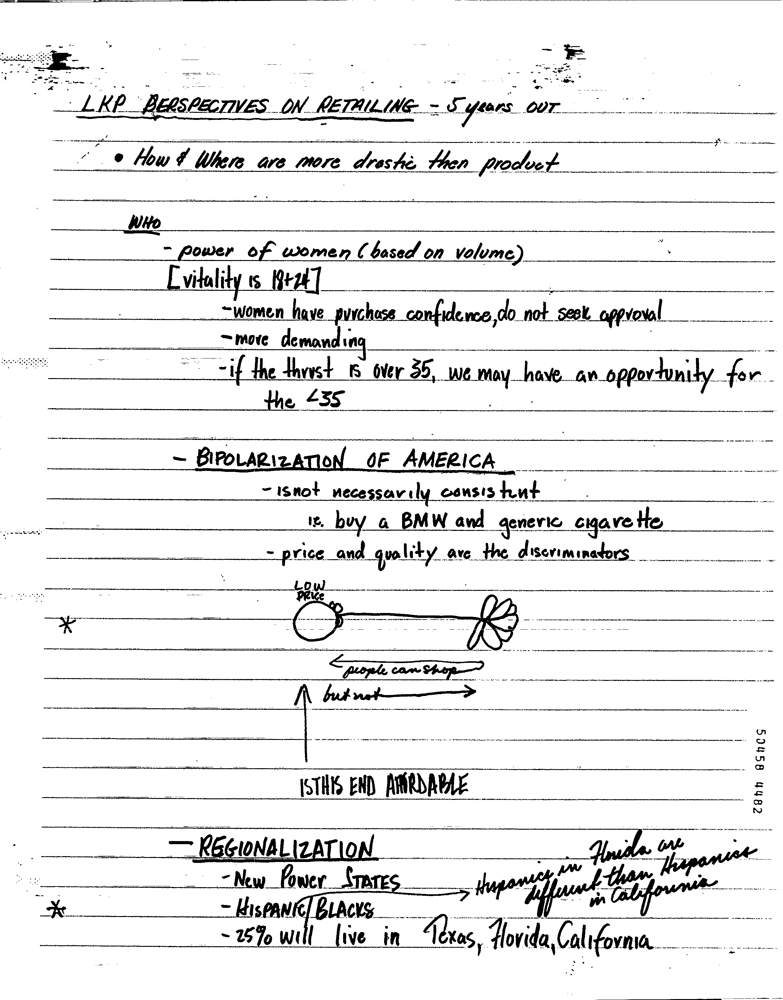 LKP BERSPECTIVES ON RETAILING - 5 years OUT
• How & Where are more drastic then product
WHO
- power of women (based on volume)
[vitality is 18+24]
- women have purchase confidence, do not seek approval
- more demanding
- if the thrust is over 35, we may have an opportunity for
the <35
- BIPOLARIZATION OF AMERICA
- is not necessarily consistent
ie. buy a BMW and generic cigarette
- price and quality are the discriminators
LOW
PRICE
*
people can shop
but not
IS THIS END AFFORDABLE
50458 4482
- REGIONALIZATION
- New Power STATES
- HISPANIC/BLACKS
Hispanics in Florida are
different than Hispanics
in California
*
- 25% will live in Texas, Florida, California